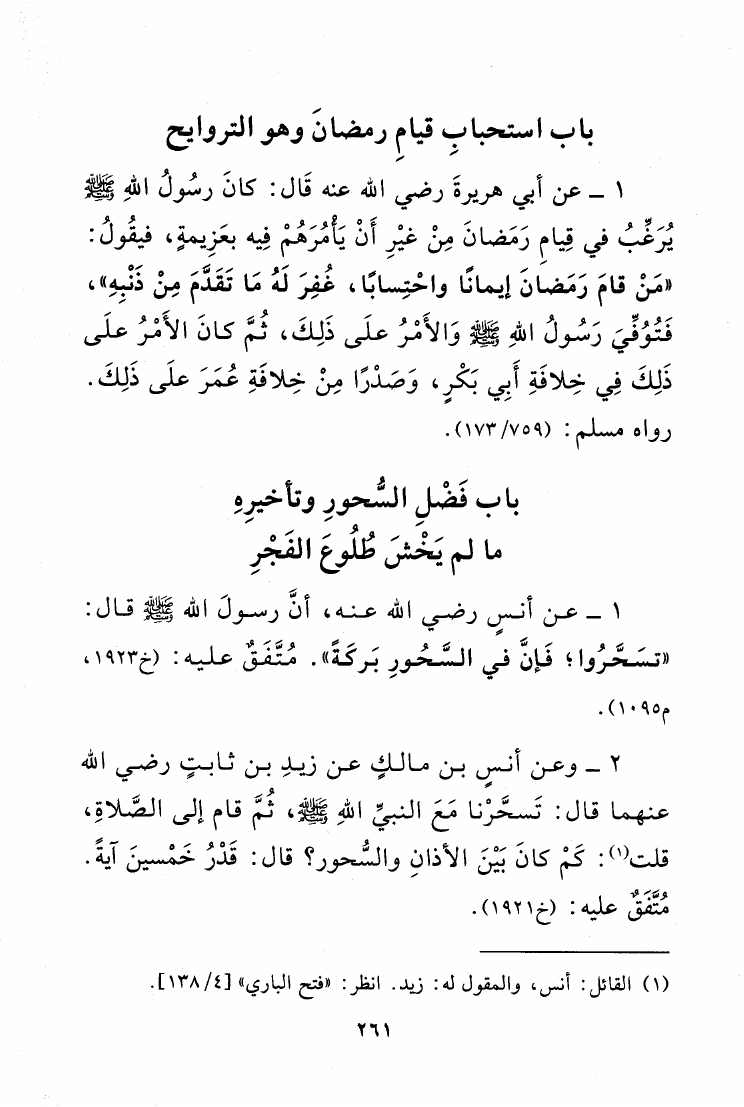 باب استحبابِ قيامِ رمضانَ وهو التروايح
١ ــ عن أبي هريرةَ رضي الله عنه قَال: كانَ رسُولُ اللهِ ﷺ
يُرَغِّبُ في قِيامِ رَمَضانَ مِنْ غيْرِ أَنْ يَأْمُرَهُمْ فِيه بعَزِيمةٍ، فيقُولُ:
«مَنْ قامَ رَمَضانَ إيمانًا واحْتِسابًا، غُفِرَ لَهُ مَا تَقَدَّمَ مِنْ ذَنْبِهِ»،
فَتُوُفِّيَ رَسُولُ اللهِ ﷺ وَالأَمْرُ علَى ذَلِكَ، ثُمَّ كانَ الأَمْرُ علَى
ذَلِكَ فِي خِلافَةِ أَبِي بَكْرٍ، وَصَدْرًا مِنْ خِلافَةِ عُمَرَ علَى ذَلِكَ.
رواه مسلم: (١٧٣/٧٥٩).
باب فَضْلِ السُّحورِ وتأخيرِهِ
ما لم يَخْشَ طُلُوعَ الفَجْرِ
١ ــ عن أنسٍ رضي الله عنه، أنَّ رسولَ الله ﷺ قال:
«تسَحَّرُوا؛ فَإنَّ في السَّحُورِ بَركَةً». مُتَّفَقٌ عليه: (خ١٩٢٣،
م١٠٩٥).
٢ ــ وعن أنسِ بن مالكٍ عن زيدِ بن ثابتٍ رضي الله
عنهما قال: تَسحَّرْنا مَعَ النبيِّ اللهِ ﷺ، ثُمَّ قام إلى الصَّلاةِ،
قلت(١): كَمْ كانَ بَيْنَ الأذانِ والسُّحور؟ قال: قَدْرُ خَمْسينَ آيةً.
مُتَّفَقٌ عليه: (خ١٩٢١).
(١) القائل: أنس، والمقول له: زيد. انظر: «فتح الباري» [٤/ ١٣٨].
٢٦١